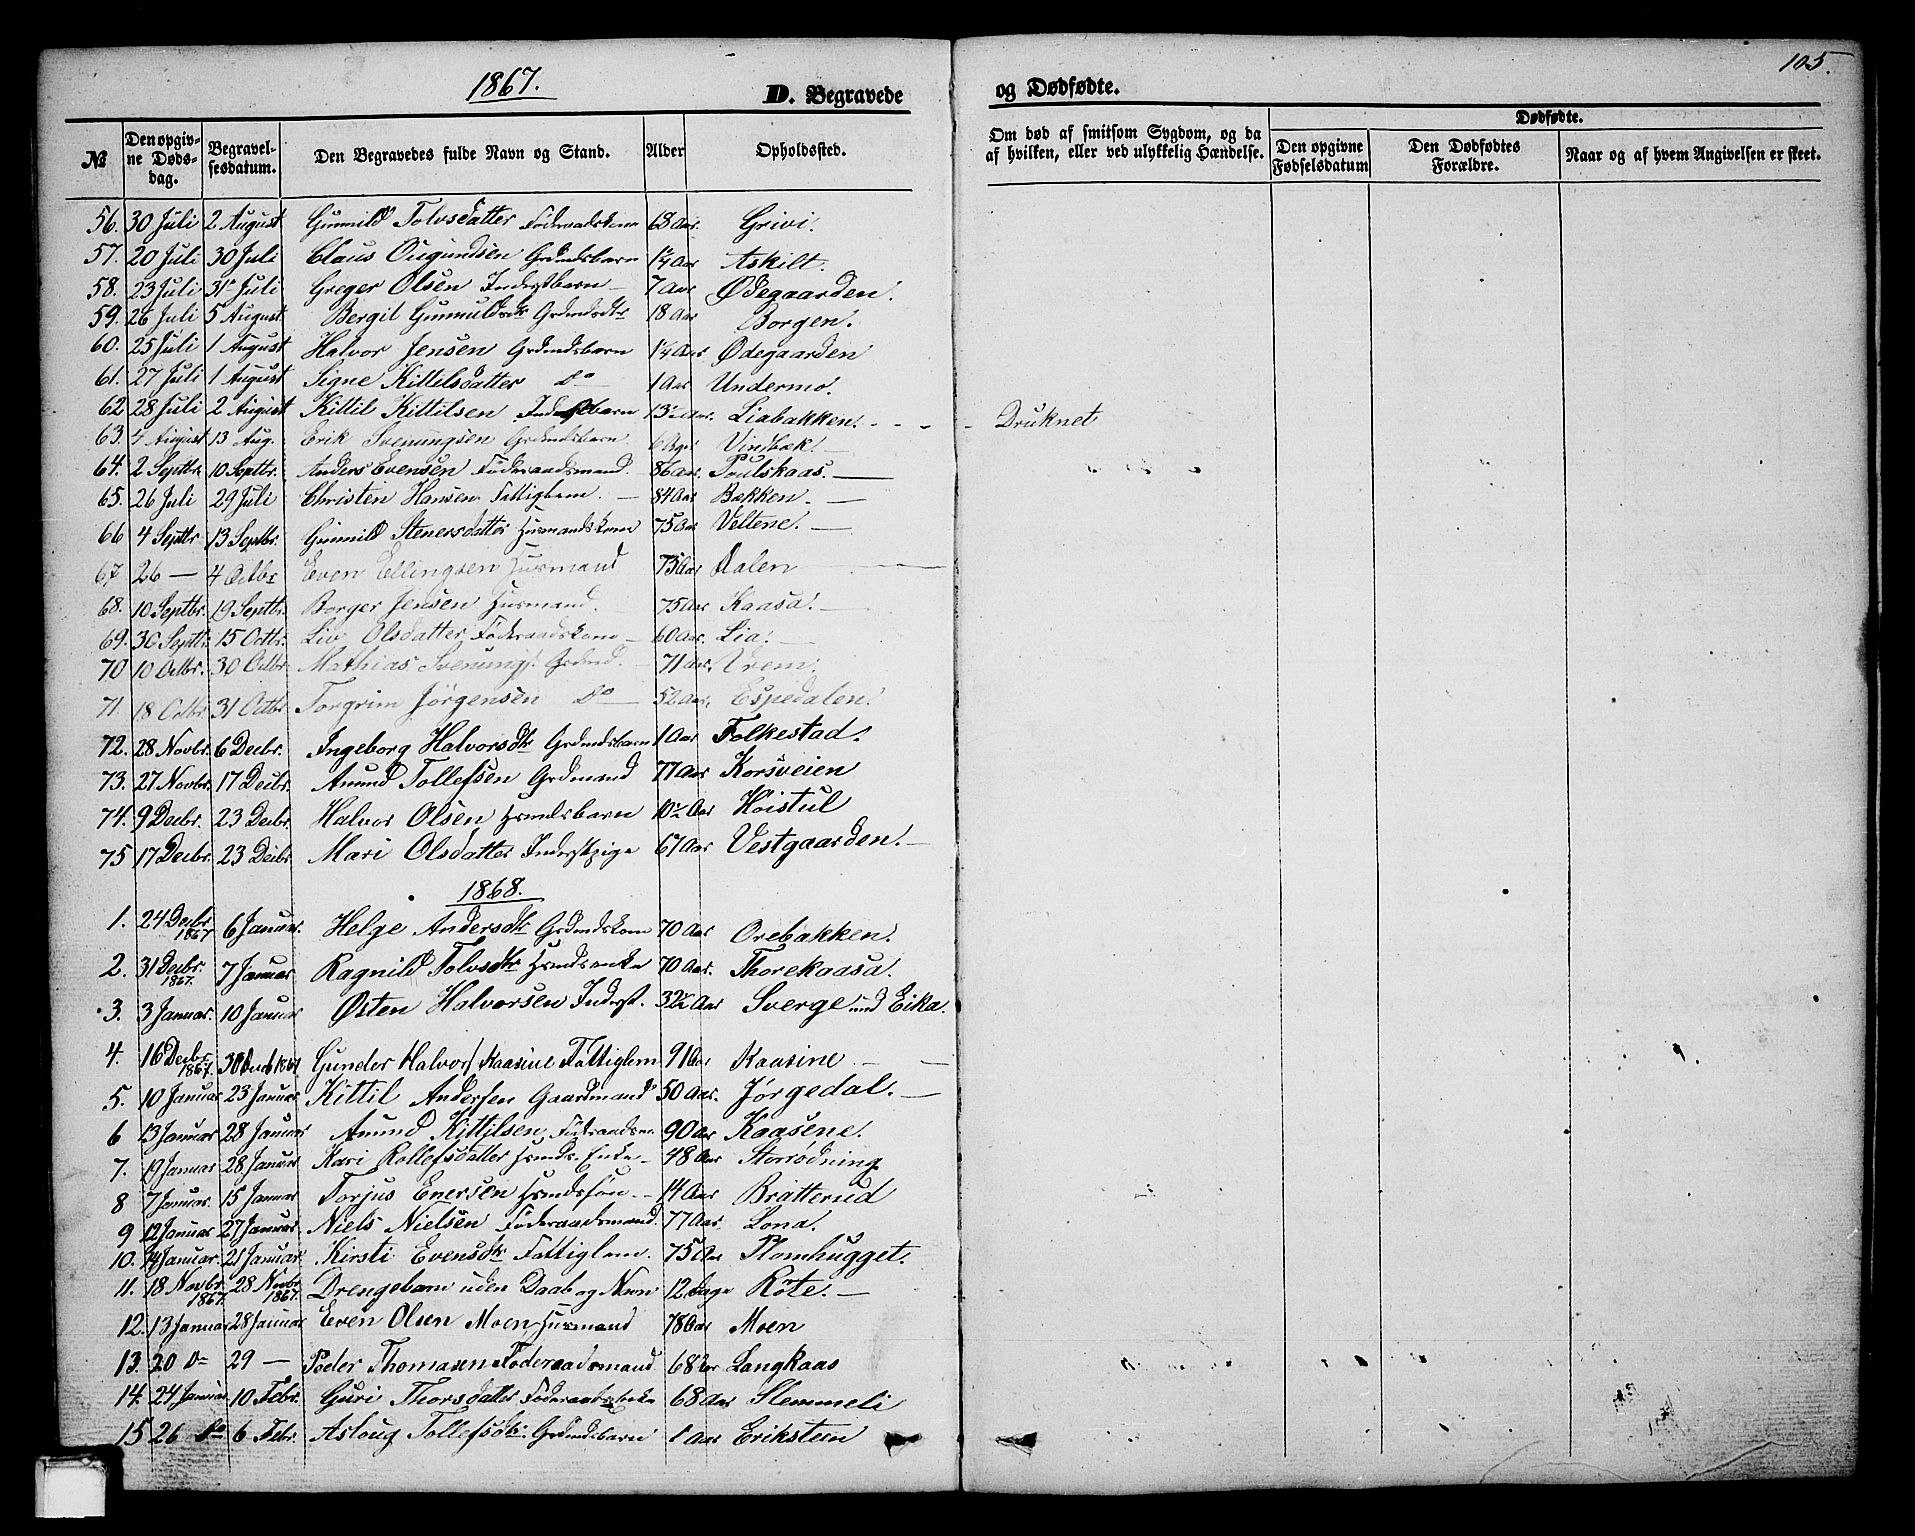 1867.
D. Begravede
og Dødfødte.
105.
№ | Den opgivne Dødsdag. | Begravelsesdatum. | Den Begravedes fulde Navn og Stand. | Alder | Opholdssted. | Om død af smitsom Sygdom, og da af hvilken, eller ved ulykkelig Hændelse. | Dødfødte. | Den opgivne Fødselsdatum | Den Dødfødtes Forældre. | Naar og af hvem Angivelsen er skeet.
56. 30 Juli 2 August Gunnild Tolvsdatter Föderaadskone 68 Aar. Grivi.
57. 20 Juli 30 Juli Claus Ougundsen Grdmdsbarn 1¼ Aar Askilt.
58. 23 Juli 31 Juli Greger Olsen Inderstbarn 7 Aar Ødegaarden.
59. 26 Juli 5 August Bergit Gunnulfsdtr Grdmdsdtr 18 Aar Borgen.
60. 25 Juli 1 August Halvor Jensen Grdmdsbarn 1¼ Aar Ødegaarden
61. 27 Juli 1 August Signe Kittilsdatter Do 1 Aar Undermo.
62 28 Juli 2 August Kittil Kittilsen Inderstbarn 13½ Aar. Liabakken. - - - Druknet
63. 4 August 13 Aug. Erik Svenungsen Grdmdsbarn. 6 Vindbæk.
64. 2 Septbr. 10 Septbr. Anders Evensen Föderaadsmand. 86 Aar. Prulskaas.
65. 26 Juli 29 Juli Christen Hansen Fattiglem. 84 Aar Bækken.
66 4 Septbr 13 Septbr. Gunnild Stenersdatter Husmandskone 75 Aar Veltene.
67 26 — 4 Octbr Even Ellingsen Husmand 73 Aar Dalen
68. 10 Septbr. 19 Septbr. Borger Jensen Husmand. 75 Aar Kaasa.
69. 30 Septbr. 15 Octbr. Liv Olsdatter Föderaadskone 60 Aar. Lia.
70 10 Octbr. 30 Octbr. Mathias Svenungs. Grdmd. 71 Aar. Vrem.
71. 18 Octbr. 31 Octbr. Torgrim Jørgensen Do 52 Aar. Espedalen.
72. 28 Novbr. 6 Decbr. Ingeborg Halvorsdtr Grdmdsbarn 1 Aar Folkestad.
73. 27 Novbr. 17 Decbr. Amund Tollefsen Grdmand 77 Aar Korsveien
74. 9 Decbr. 23 Decbr. Halvor Olsen Hsmdsbarn 10½ Aar Høistul
75 17 Decbr. 23 Decbr. Mari Olsdatter Inderstpige 67 Aar Vestgaarden.
1868.
1. 24 Decbr. 1867 6 Januar. Helge Andersdtr Grdmdskone 70 Aar Orebakken.
2. 31 Decbr. 1867. 7 Januar Ragnild Tolvsdtr Hsmdsenke 70 Aar. Thorekaasa.
3. 3 Januar. 10 Januar Østen Halvorsen Inderst. 32½ Aar Sverge und Eika.
4. 16 Decbr 1867. 30 1867 Gunder Halvors Kaasine Fattiglem 91 Aar Kaasine
5. 10 Januar 23 Januar Kittil Andersen Gaardmand 50 Aar. Jørgedal.
6 13 Januar 28 Januar Amund Kittilsen Föderaadsm. 90 Aar Kaasene.
7. 19 Januar 28 Januar Kari Rollefsdatter Hsmds. Enke 48 Aar Storrødning
8 7 Januar. 15 Januar Torjus Enersen Hsmdssön 14 Aar Bratterud
9 12 Januar 27 Januar. Niels Nielsen Föderaadsmand. 77 Aar. Lona.
10. 14 Januar. 21 Januar Kirsti Evensdtr Fattiglem. 75 Aar Plomhugget.
11. 18 Novbr. 1867. 28 Novbr 1867. Drengebarn uden Daab og Navn 12 Dage Röte.
12. 13 Januar 28 Januar Even Olsen Moen Husmand 78 Aar Moen
13. 20 Do 29 — Peder Thomasen Föderaadsmand 68½ Aar Langkaas
14. 24 Januar 10 Febr. Guri Thorsdatter Föderaadsenke 68 Aar Slemmeli
15 26 Do 6 Febr. Aslaug Tollefsdtr. Grdmdsbarn 1 Aar Erikstein